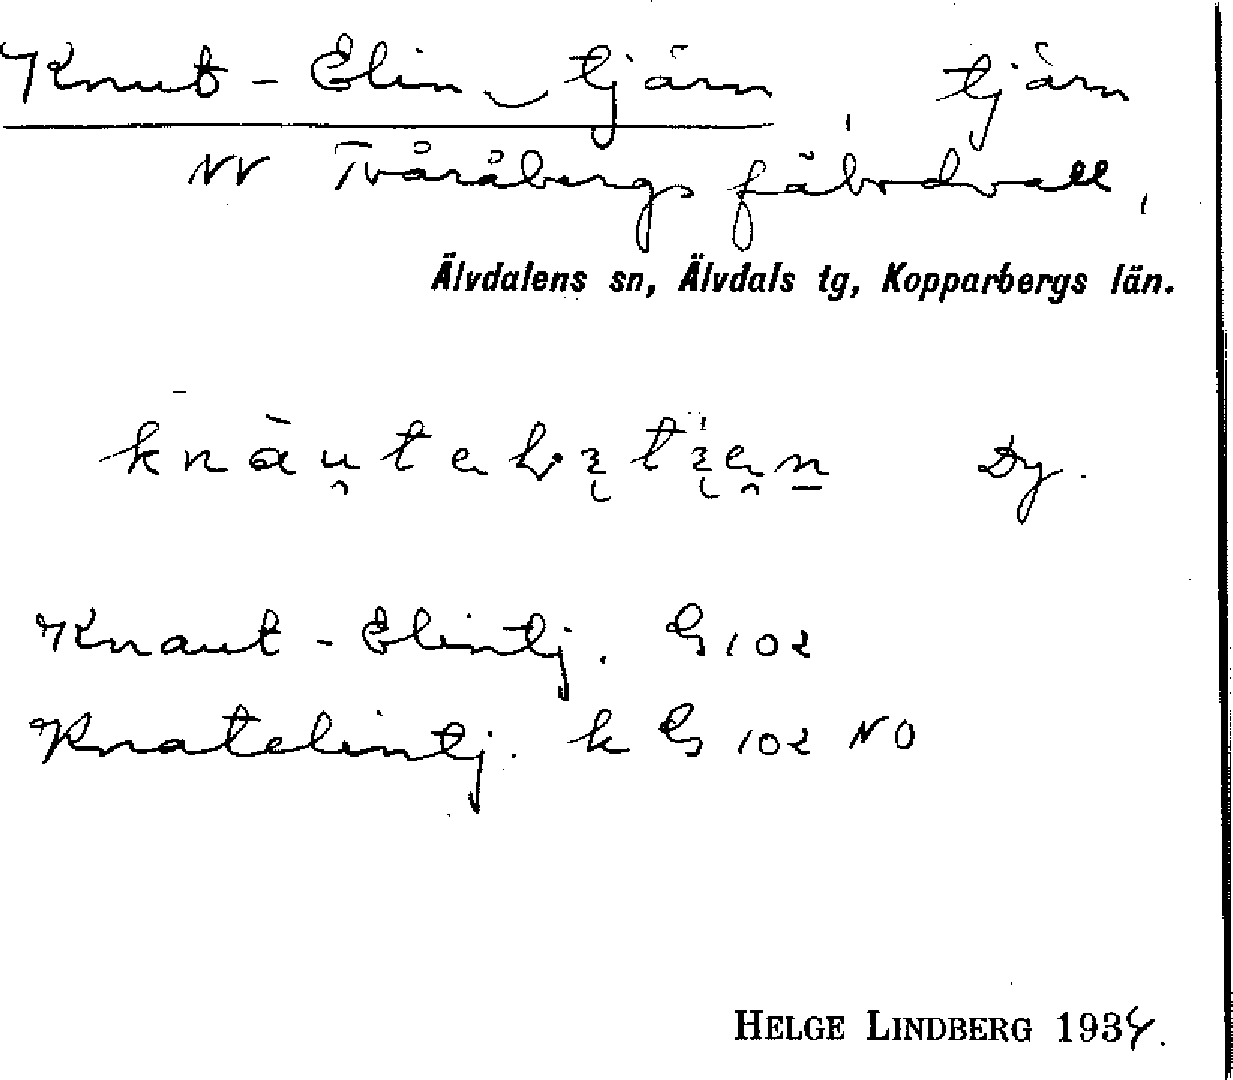 Knut-Elin tjärn, tjärn
NV Tvåråbergs fäbodvall,
Älvdalens sn, Älvdals tg, Kopparbergs län.
Dy.
Knaut-Elintj. G 102
Knatelintj. k G 102 NO
HELGE LINDBERG 1934.